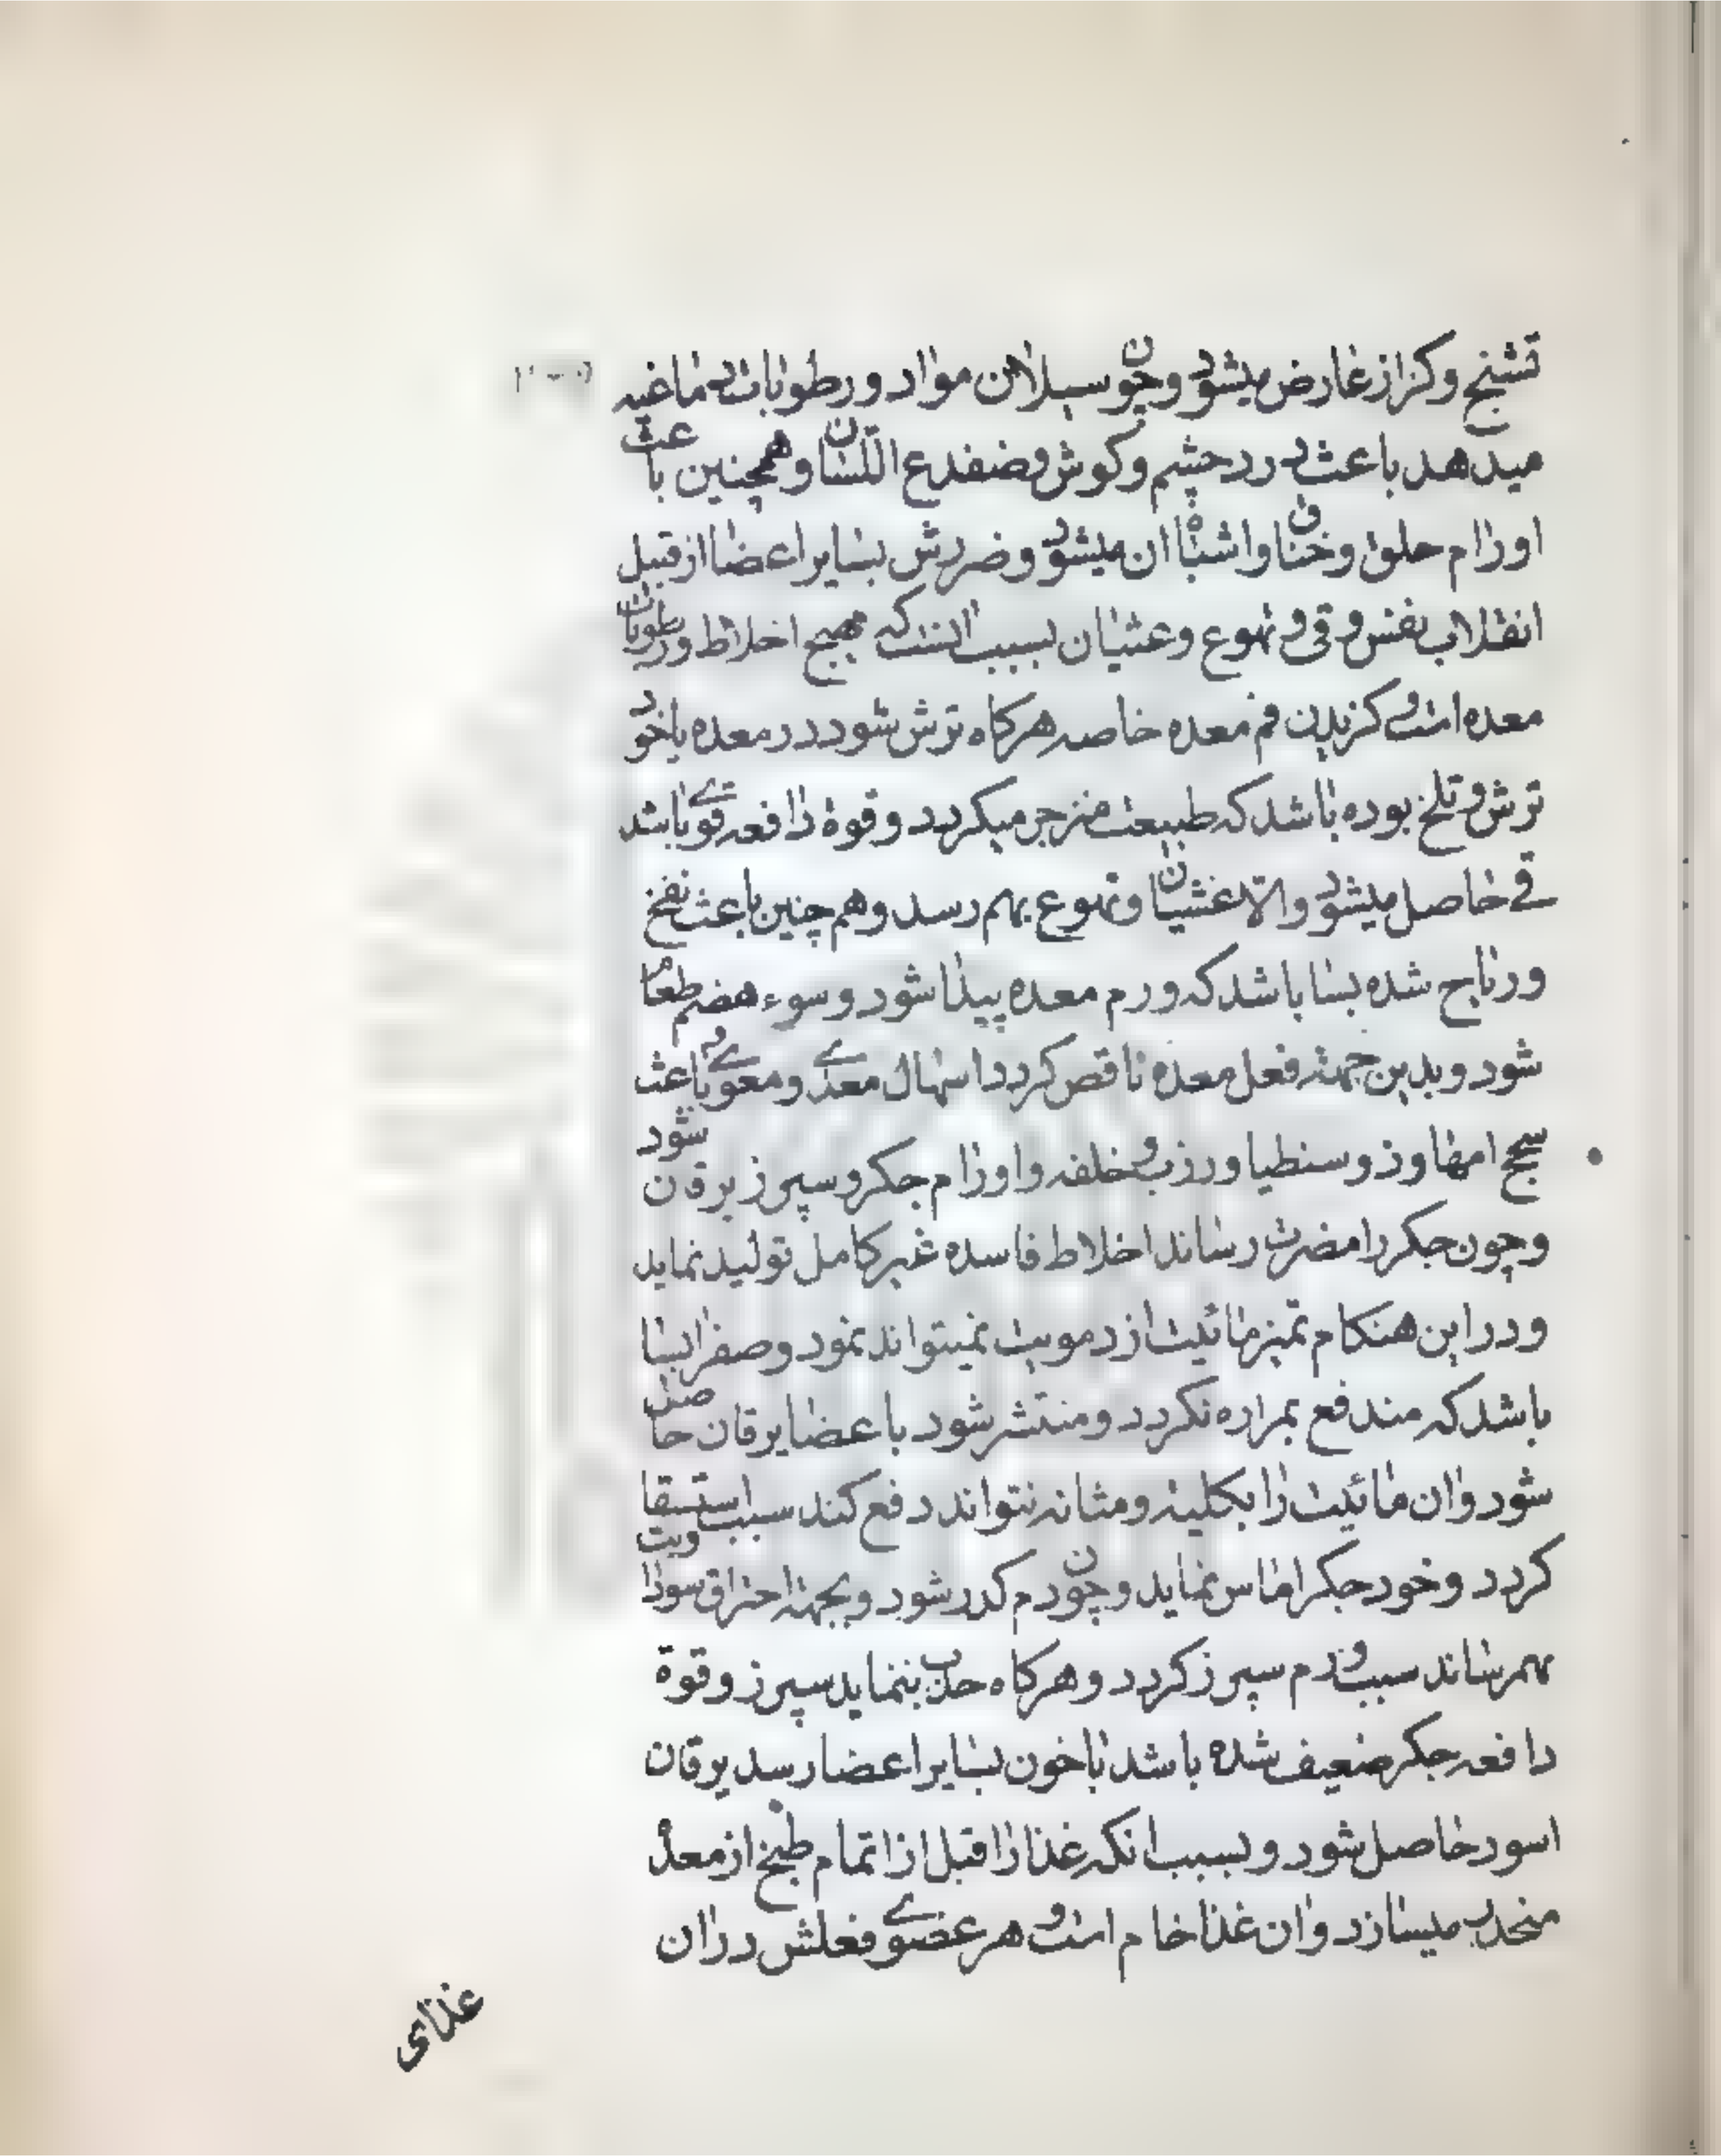 تشنج وكزاز عارض میشود وچون سیلان مواد و رطوبات دماغیه
میدهد باعث درد چشم وكوش وضفدع اللسان وهمچنین باعث
اورام حلق وخناق واشباه ان میشود وضررش بسایر اعضا از قبیل
انقلاب نفس وقی وتهوع وغثیان بسبب انست كه مهیج اخلاط ورطوبات
معده است وكزیدن فم معده خاصه هركاه ترش شود در معده یا خود
ترش وتلخ بوده باشد كه طبیعت منزجر میكردد وقوة دافعه قوی باشد
قی حاصل میشود والا غثیان وتهوع بهم رسد وهم چنین باعث نفخ
وریاح شده بسا باشد كه ورم معده پیدا شود وسوء هضم طعام
شود وبدین جهة فعل معده ناقص كردد اسهال معدی ومعوی باعث
سحج امعا وذوسنطیا ورزب وخلفه واورام جكر وسپرز یرقان شود
وچون جكر را مضرت رساند اخلاط فاسده غیر كامل تولید نماید
ودر این هنكام تمیز مائیت از دمویت نمیتواند نمود وصفرا بسا
باشد كه مندفع بمراره نكردد ومنتشر شود باعضا یرقان حاصل
شود وان مائیت را بكلیه ومثانه نتواند دفع كند سبب استسقا
كردد وخود جكر اماس نماید وچون دم كدر شود وبجهة احتراق سودا
بهم رساند سبب ورم سپرز كردد وهركاه جذب ننماید سپرز وقوة
دافعه جكر ضعیف شده باشد با خون بسایر اعضا رسد یرقان
اسود حاصل شود وبسبب انكه غذا را قبل از اتمام طبخ از معده
منحدر میسازد وان غذا خام است وهر عضوی فعلش در ان
غذای